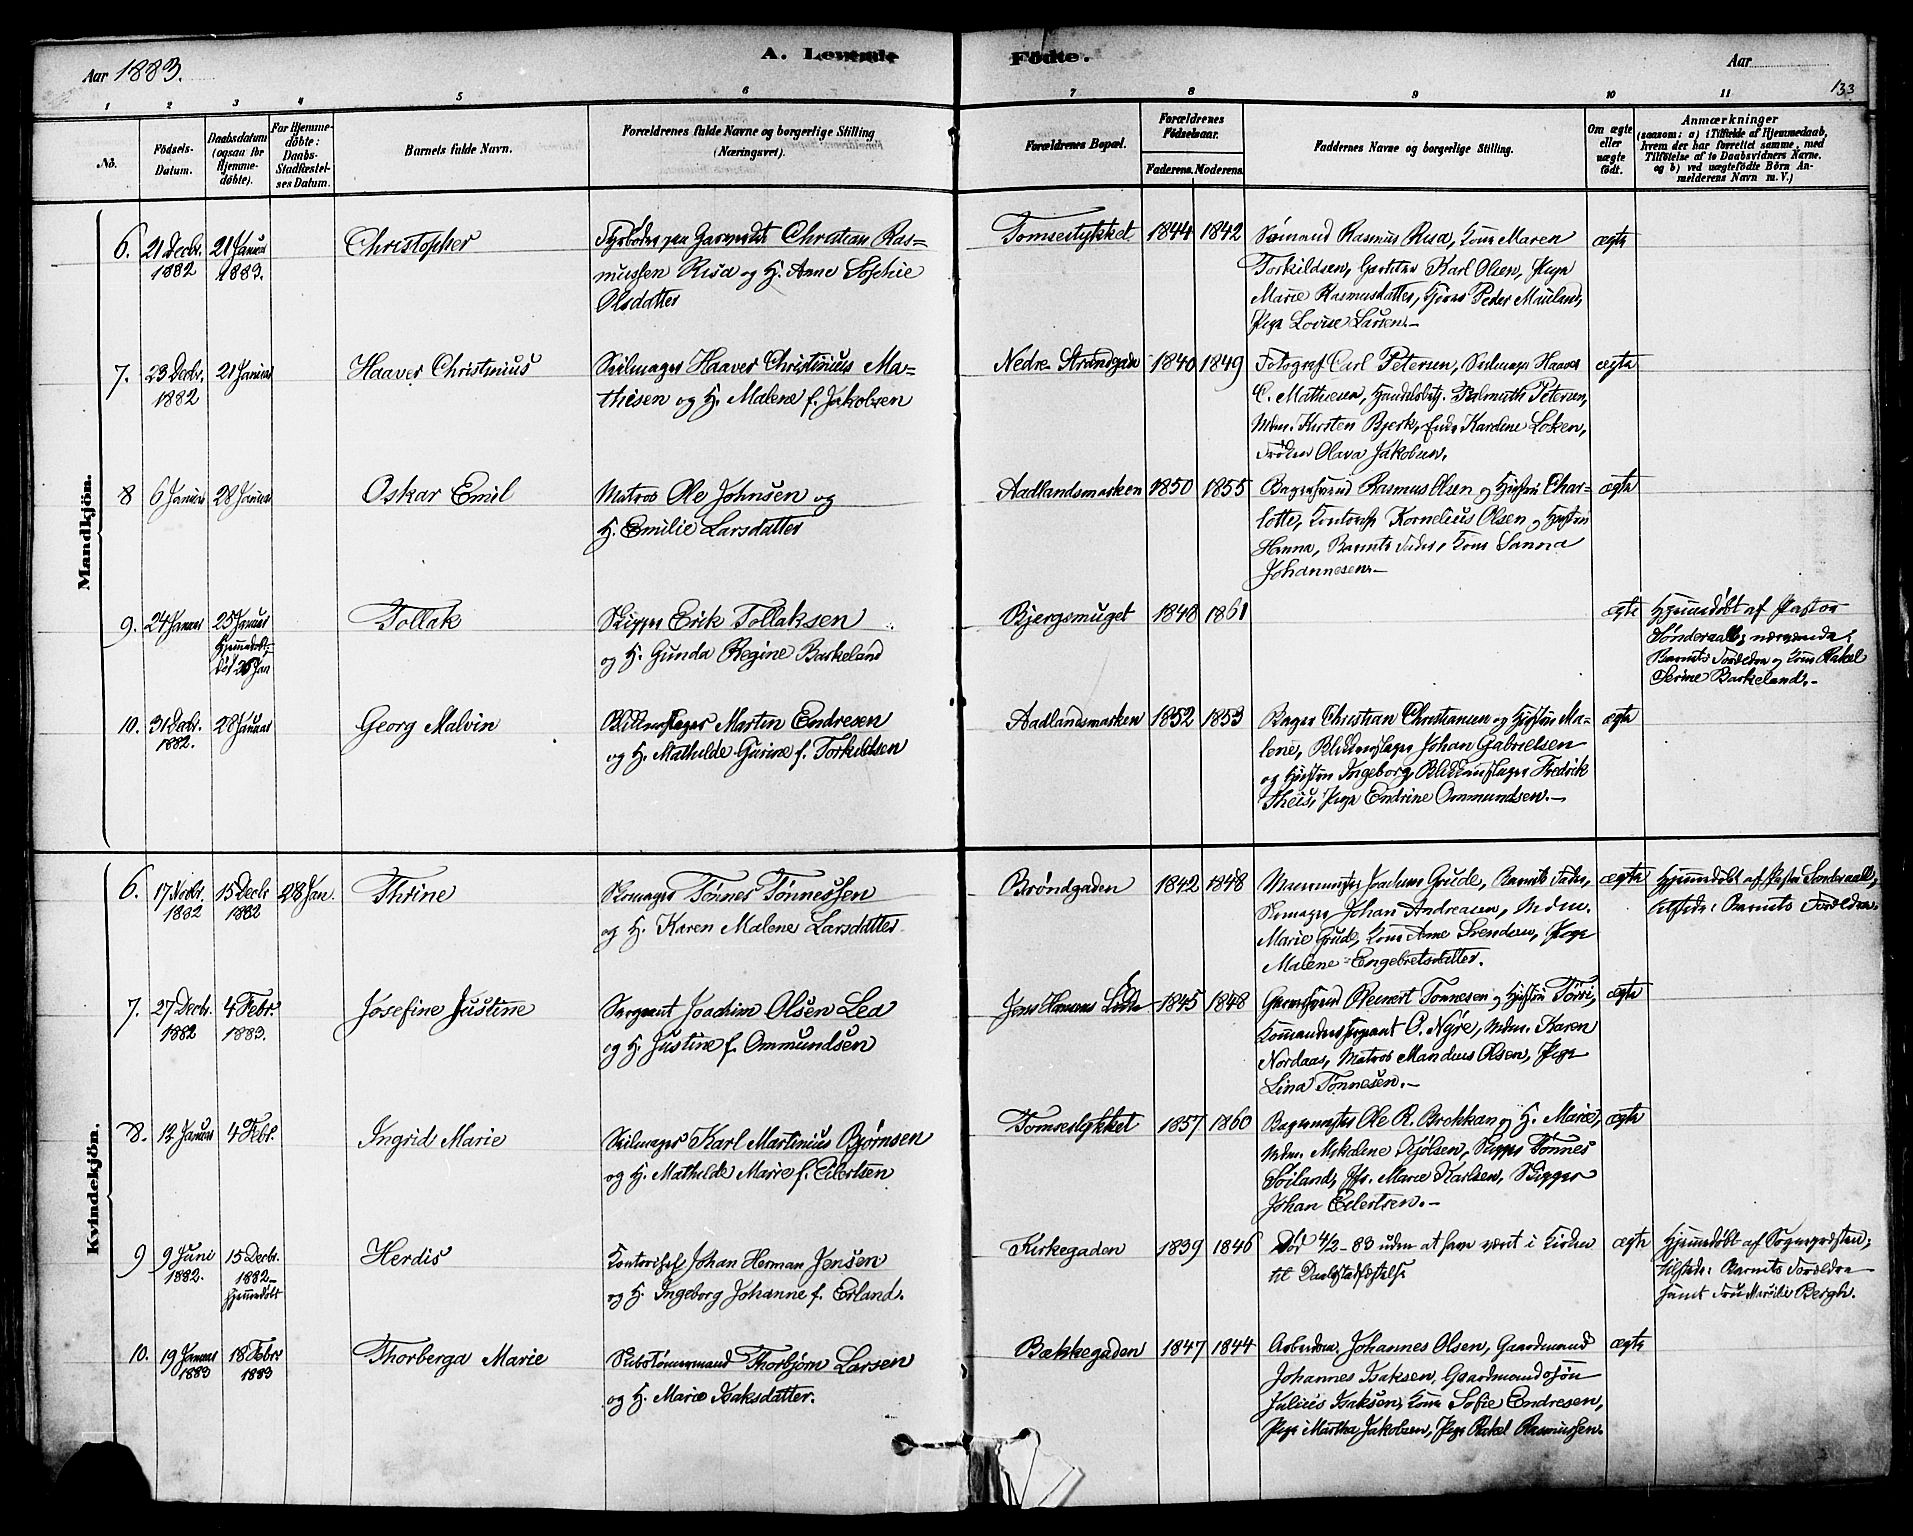 Aar 1883.
A. Levende
Födte.
Aar
133
1
2
3
4
5
6
7
8
9
10
11
No.
Födsels-
Datum.
Daabsdatum
(ogsaa for
Hjemme-
döbte).
For Hjemme-
döbte:
Daabs-
Stadfæstel-
ses Datum.
Barnets fulde Navn.
Forældrenes fulde Navne og borgerlige Stilling
(Næringsvei).
Forældrenes Bopæl.
Forældrenes
Födselsaar.
Faderens. Moderens.
Faddernes Navne og borgerlige Stilling.
Om ægte
eller
uægte
födt.
Anmærkninger
(saasom: a) i Tilfælde af Hjemmedaab,
hvem der har forrettet samme, med
Tilföielse af to Daabsvidners Navne.
og b) ved uægtefödte Börn An-
melderens Navn m. V.)
Mandkjön.
6.
21 Decbr.
1882
21 Januar
1883.
Christopher
Christian Ras-
mussen Risa og H. Anne Sofhie
Olsdatter
Tomsestykket
1844
1842
Sømand Rasmus Risa, Kone Maren
Torkildsen, Karl Olsen, Pige
Marie Rasmusdatter, Peder Mauland,
Pige Lovise Larsen.
ægte
7.
23 Decbr.
1882
21 Januar
Haaver Christinius
Seilmager Haaver Christinius Ma-
thisen og H. Malene f. Jakobsen
Nedre Strandgade
1840
1849
Fotograf Carl Petersen, Seilmager Haaver
C. Mathisen, Handelsbetj. Petersen,
Mdm. Kirsten Bjerk, Enke Kardine Loken,
Frøken Olava Jakobsen.
ægte
8
6 Januar
28 Januar
Oskar Emil
Matros Ole Johnsen og
H. Emilie Larsdatter
Aadlandsmarken
1850
1855
Bagersvend Rasmus Olsen og Hustru Char-
lotte, Kontorist Kornelius Olsen og Hustru
Hanna, Barnets Fader, Kone Sanna
Johannesen.
ægte
9.
24 Januar
25 Januar
Hjemmedøbt
død 26 Jan
Tollak
Skipper Erik Tollaksen
og H. Gunda Regine Barkeland
Bjergsmuget
1848
1861
ægte
Hjemmedøbt af Pastor
Sønderaal; nærværende:
Barnets Forældre og Kone Rakel
Serine Barkeland.
10.
31 Decbr.
1882.
28 Januar
Georg Malvin
Blikkenslager Martin Endresen
og H. Mathilde Gurine f. Torkildsen
Aadlandsmarken
1852
1853
Bager Christian Christiansen og Hustru Ma-
lene, Blikkenslager Johan Gabrielsen
og Hustru Ingeborg, Blikkenslager Fredrik
Theis, Pige Endrine Ommundsen.
ægte
Kvindekjön.
6.
17
1882
15 Decbr.
1882
28 Jan.
Thrine
Skomager Tønnes Tønnessen
og H. Karen Malene Larsdatter
Brøndgaden
1842
1848
Murmester Joachim Grude, Barnets Fader,
Skomager Johan Andreasen, Mdm.
Marie Grude, Kone Anne Svendsen, Pige
Malene Engebretsdatter.
ægte
Hjemmedøbt af Pastor Sønderaal;
tilstede: Barnets Forældre.
7.
27 Decbr.
1882
4 Febr.
1883.
Josefine Justine
Sergeant Joachim Olsen Lea
og H. Justine f. Ommundsen
1845
1848
Reinert Tønnesen og Hustru Torri,
Kommandersergeant O. Nyre, Mdm. Karen
Nordaas, Matros Mandius Olsen, Pige
Lina Tønnesen.
ægte
8.
12 Januar
4 Febr.
Ingrid Marie
Seilmager Karl Martinius Bjørnsen
og H. Mathilde Marie f. Eilertsen
Tomsestykket
1857
1860
Bagermester Ole R. Brekkan og H. Marie,
Mdm. Mikoline Kjølsen, Skipper Tønnes
Soiland, Jfr. Marie Karlsen, Skipper
Johan Eilertsen.
ægte
9
9 Juni
1882.
15 Decbr.
1882
Hjemmedøbt
Herdis
Kontorchef Johan Herman Jensen
og H. Ingeborg Johanne f. Erland.
Kirkegaden
1839
1846
Død 4/2-83 uden at have været i Kirken
til Daabstadfæstelse
ægte
Hjemmedøbt af Sognepresten;
tilstede: Barnets Forældre
samt Frue Bergh.
10.
19 Januar
1883
18 Febr.
1883
Thorberga Marie
Skibstømmermand Thorbjørn Larsen
og H. Marie Isaksdatter.
Bækkegaden
1847
1844
Arbeider Johannes Olsen, Gaardmand
Johannes Isaksen, Gaardmandssøn
Julius Isaksen, Kone Sofie Endresen,
Pige Martha Jakobsen, Pige Rakel Rasmussen.
ægte